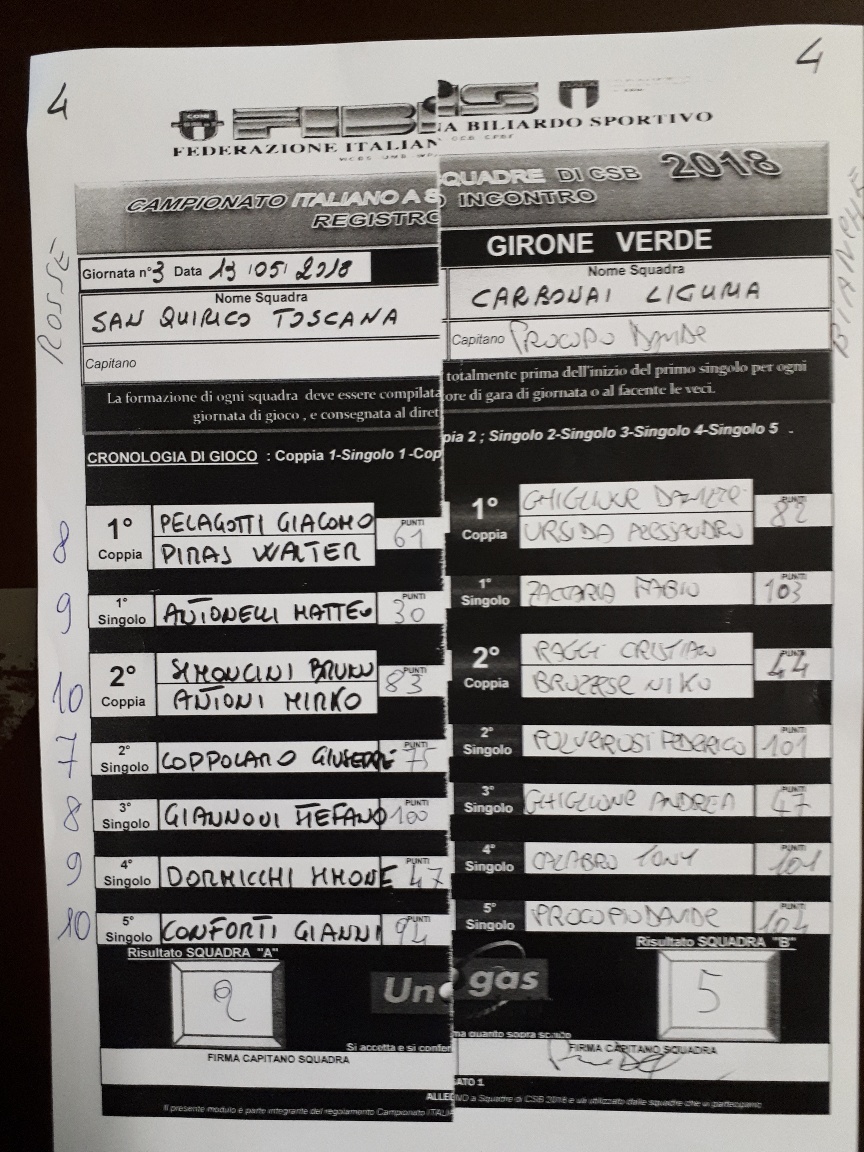 4 4
FIBIS
FEDERAZIONE ITALIANA BILIARDO SPORTIVO
CAMPIONATO ITALIANO A SQUADRE DI CSB 2018
REGISTRO INCONTRO
ROSSE
BIANCHE
GIRONE VERDE
Giornata n°3 Data 13/05/2018
Nome Squadra
SAN QUIRICO TOSCANA
Capitano
Nome Squadra
CARBONAI LIGURIA
Capitano PROCOPIO DAVIDE
La formazione di ogni squadra deve essere compilata totalmente prima dell'inizio del primo singolo per ogni
giornata di gioco , e consegnata al direttore di gara di giornata o al facente le veci.
CRONOLOGIA DI GIOCO : Coppia 1-Singolo 1-Coppia 2 ; Singolo 2-Singolo 3-Singolo 4-Singolo 5 .
8 1° Coppia PELAGOTTI GIACOMO PUNTI 61
PIRAS WALTER
1° Coppia GHIGLIONE DANIELE PUNTI 82
URSIDA ALESSANDRO
9 1° Singolo ANTONELLI MATTEO PUNTI 30
1° Singolo ZACCARIA FABIO PUNTI 103
10 2° Coppia SIMONCINI BRUNO PUNTI 83
ANTONI MIRKO
2° Coppia RAGGI CRISTIAN PUNTI 44
BRUZZESE NIKO
7 2° Singolo COPPOLARO GIUSEPPE PUNTI 75
2° Singolo POLVEROSI FEDERICO PUNTI 101
8 3° Singolo GIANNONI STEFANO PUNTI 100
3° Singolo GHIGLIONE ANDREA PUNTI 47
9 4° Singolo DORMICCHI SIMONE PUNTI 47
4° Singolo CALABRO TONY PUNTI 101
10 5° Singolo CONFORTI GIANNI PUNTI 94
5° Singolo PROCOPIO DAVIDE PUNTI 104
Risultato SQUADRA "A"
2
Risultato SQUADRA "B"
5
Unogas
FIRMA CAPITANO SQUADRA
FIRMA CAPITANO SQUADRA
Il presente modulo è parte integrante del regolamento